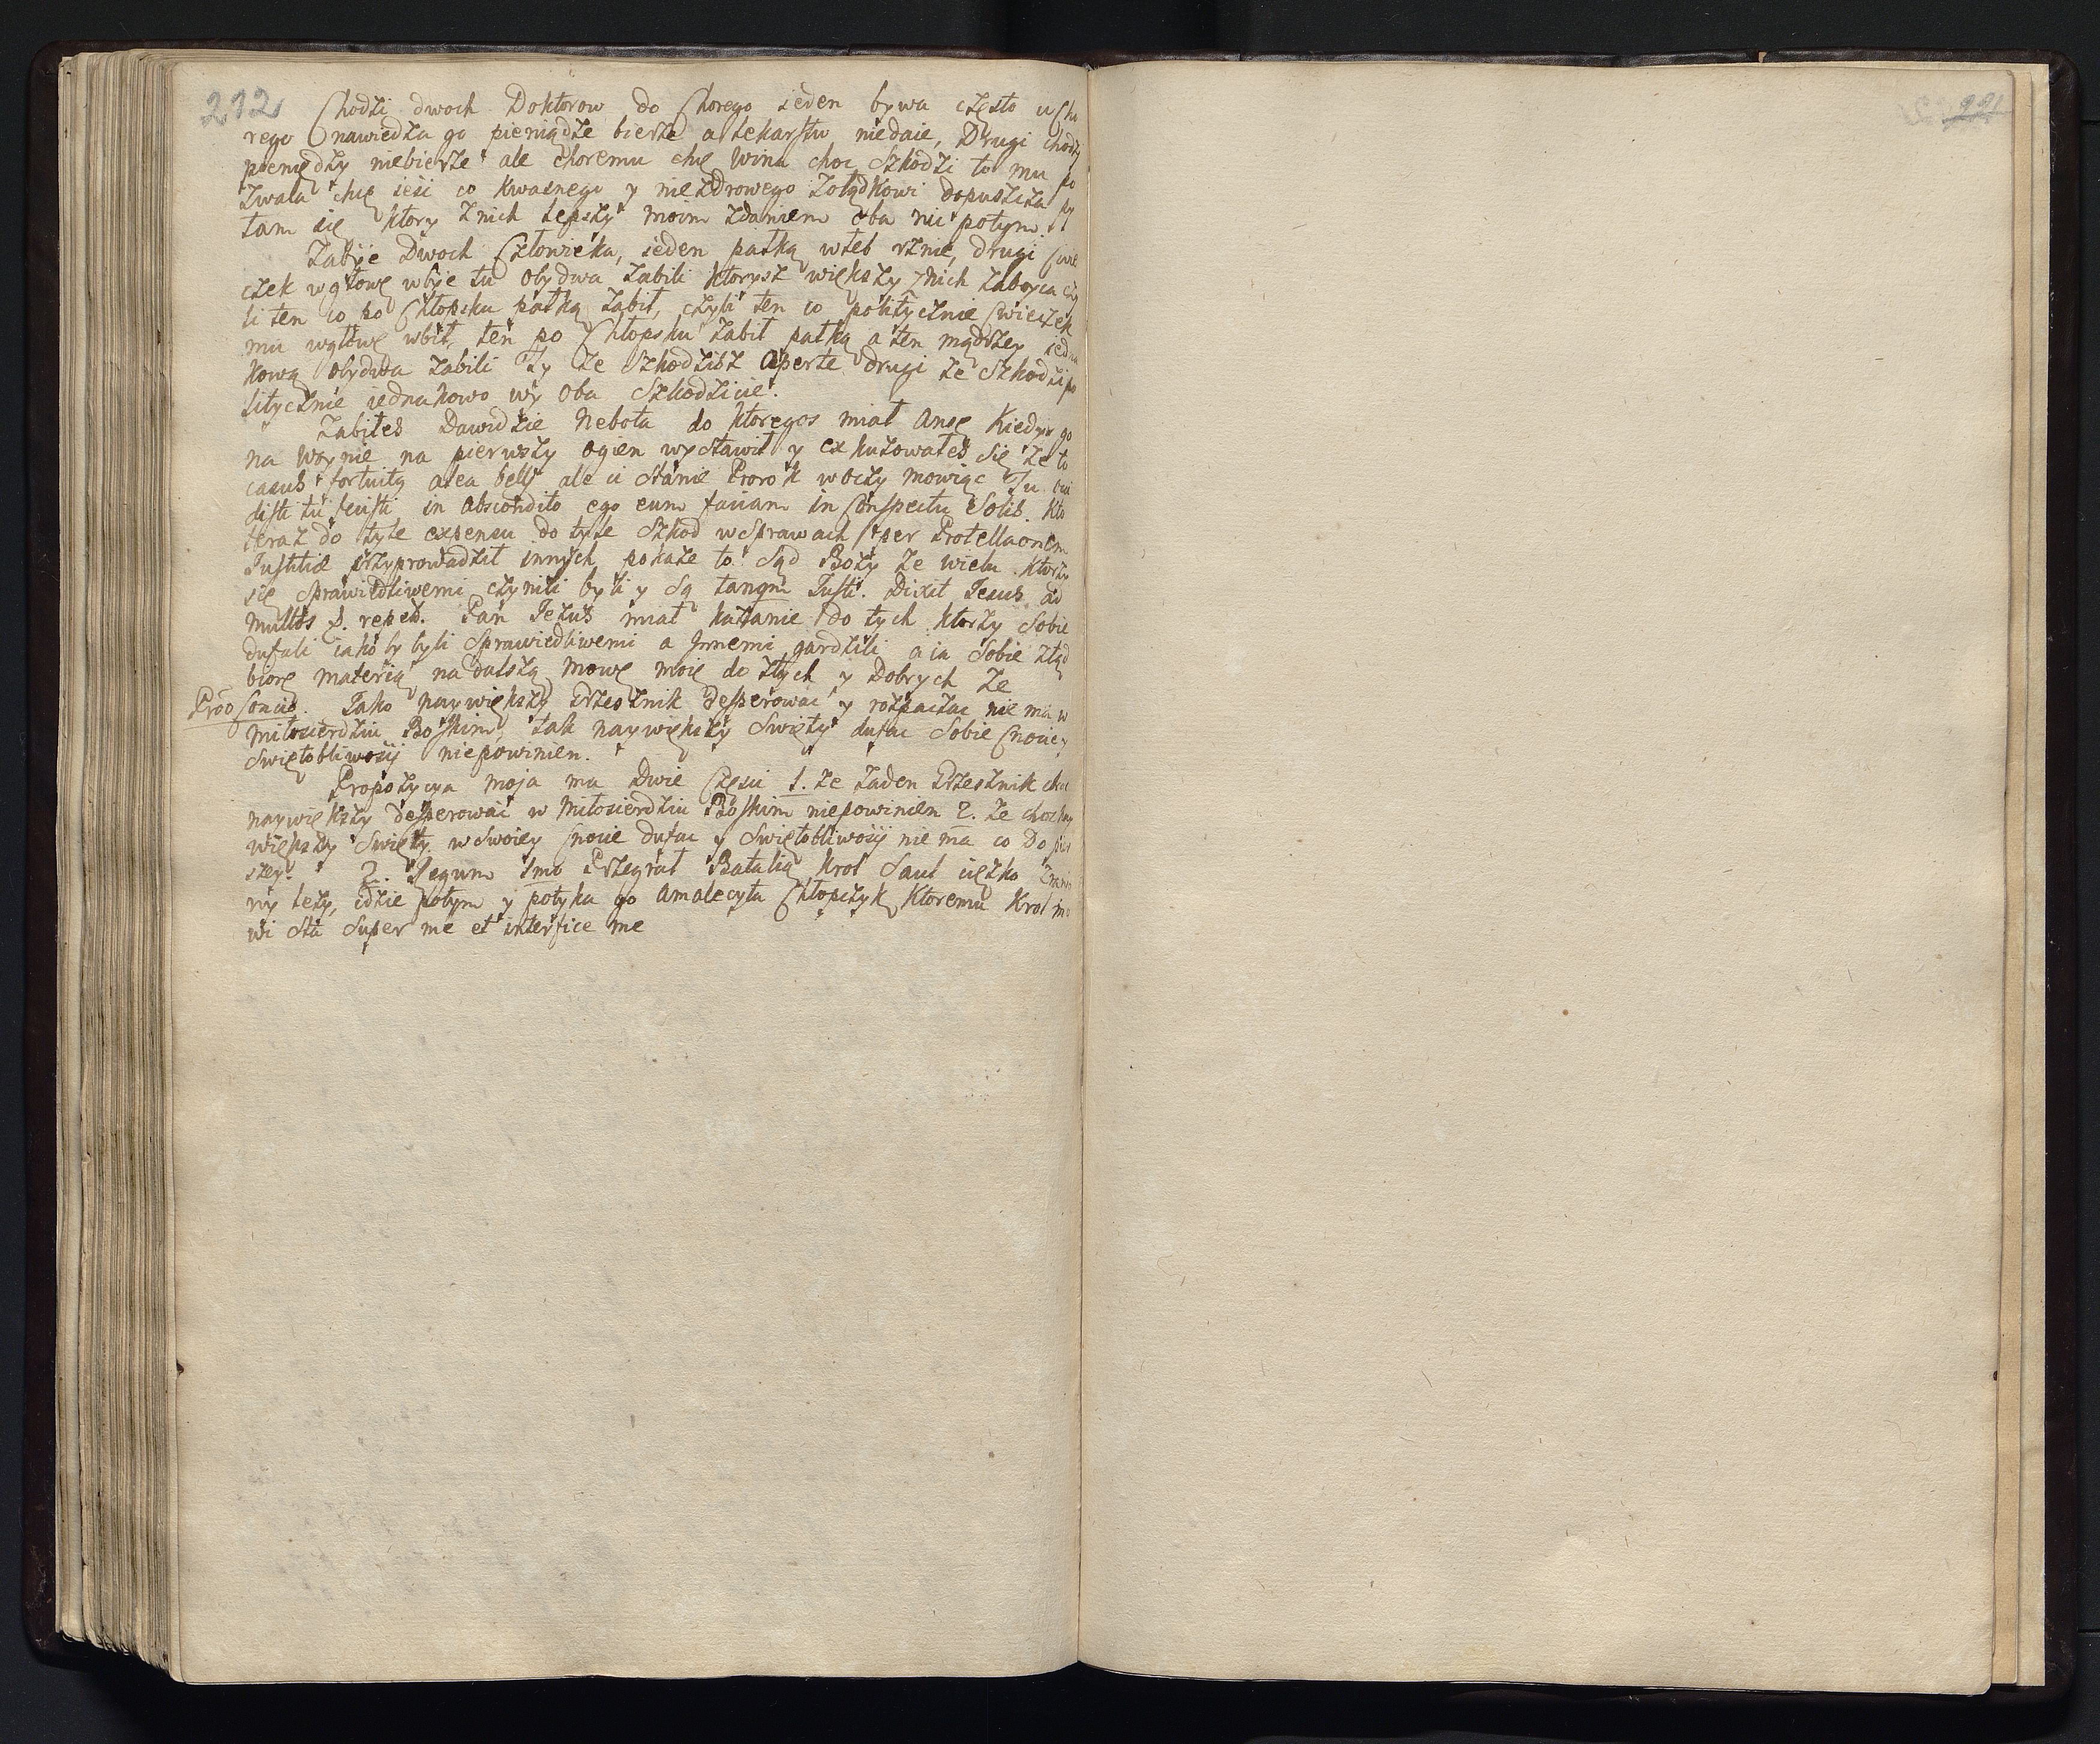 212
Chodzi dwoch Doktorow do Chorego ieden bywa często u Cho
rego nawiedza go pieniądze bierze a lekarstw niedaie, Drugi chodzi
pieniędzy niebierze ale choremu chę wina choc Szkodzi to mu po
zwala chę ieść co kwasnego y niezdrowego zołądkowi dopuszcza py
tam się ktory znich lepszy moim zdaniem oba nic potym.
Zabije Dwoch Człowieka, ieden pałką włeb rznie, drugi Cwie
czek wgłowę wbije tu obydwa zabili ktorysz większy znich zaboyca czy
li ten co po Chłopsku pałką zabił, czyli ten co politycznie Cwieczek
mu wgłowę wbił, ten po Chłopsku zabił pałką a ten mądrzey iedna
kową obydwa zabili Ty ze Szkodzisz aperte drugi ze Szkodzi po
litycznie iednakowo wy oba Szkodzicie.
Zabiłes Dawidzie Nebota do ktoregos miał Ansę Kiedys go
na Woynie na pierwszy ogien wystawił y exkuzowałes się ze to
casus fortuita alea belli ale ci Stanie Prorok w oczy mowiąc Tu occi
disti tu fecisti in abscondito ego eum faciam in Conspectu Solis. Kto
teraz do tyle expensu do tyle Szkod w Sprawach per Protellaonem
Justitiæ przyprowadził innych pokaze to Sąd Boży ze wielu ktorzy
się Sprawidliwemi czynili byli y Są tanqm Justi. Dixit Jesus ad
multos p. reped. Pan Jezus miał kazanie do tych ktorzy Sobie
dufali iakoby byli Sprawiedliwemi a Jnnemi gardzili a ia Sobie ztąd
biorę materią na dalszą mowę moię do złych y Dobrych ze
Proo Soncio. Jako naywiększy Grzesznik desperowac y rozpaczac nie ma w
miłosierdziu Boskim, tak naywiększy Swięty dufac Sobie Cnocie y
Swiętobliwosci niepowinien.
Propozycya moja ma Dwie Częsci 1. ze zaden Grzesznik choc
naywiększy desperować w Miłosierdziu Boskim niepowinien 2. ze chocby nay
większy Swięty w Swoiey Cnocie dufac y Swiętobliwosci nie ma co Do pier
szey. 2. Regum 1mo Przegrał Batalią krol Saul cięzko zranio
ny lezy, idzie potym y potyka go Amalecyta Chłopczyk Ktoremu Krol mo
wi Sta Super me et interfice me
221